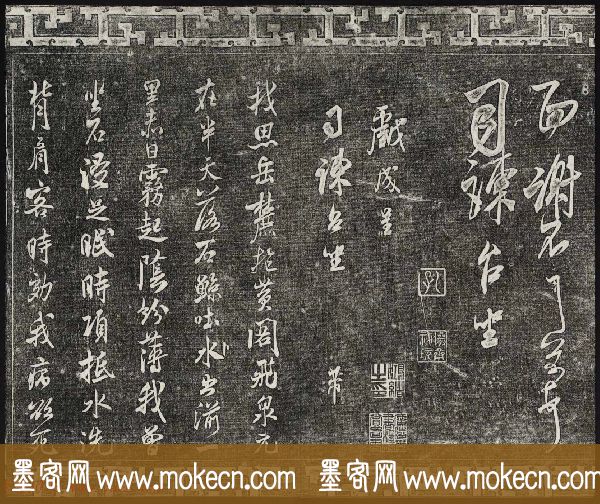 面謝不
司諫台坐
戲成呈
司諫台坐 芾
我思岳麓抱黄閣飛泉元
在半天落石鯨吐水出湔一
里赤日霧起陰紛薄我曾
坐石浸足眠時項抵水洗
背肩客時効我病欲死
墨客网 www.mokecn.com 墨客网 www.mokecn.com